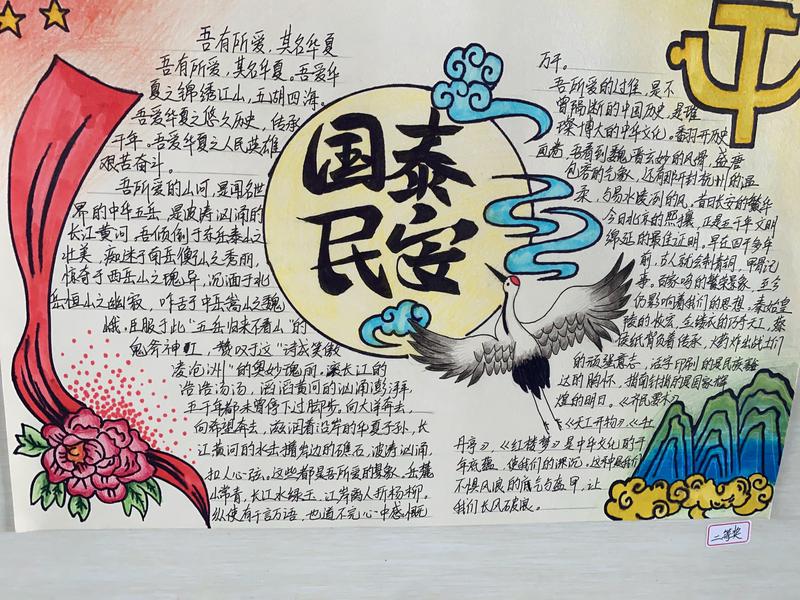 吾有所爱,其名华夏
吾有所爱,其名华夏。吾爱华
夏之锦绣江山,五湖四海。
吾爱华夏之悠久历史,传承
千年。吾爱华夏之人民英雄
艰苦奋斗。
吾所爱的山河,是闻名世
界的中华五岳,是波涛汹涌的
长江黄河。吾倾倒于东岳泰山之
壮美,痴迷于南岳衡山之秀丽,
惊奇于西岳华山之瑰异,沉湎于北
岳恒山之幽寂,咋舌于中岳嵩山之魏
峨,臣服于此“五岳归来不看山”的
鬼斧神工,赞叹于这“诗成笑傲
凌沧洲”的奥妙瑰丽。滚长江的
浩浩汤汤,滔滔黄河的汹涌澎湃
五千年都未曾停下过脚步,向大洋奔去,
向希望奔去,滋润着沿岸的华夏子孙,长
江黄河的水击撞岸边的礁石,波涛汹涌,
扣人心弦。这些都是吾所爱的景象。岳麓
山常青,长江水绿于,江岸两人折杨柳。
纵使有千言万语,也道不完心中感慨
国泰
民安
万千。
吾所爱的过往,是不
曾隔断的中国历史,是璀
璨博大的中华文化。翻开历史
画卷,吾看到魏晋玄妙的风骨,盛唐
包容的气象,还有那开封杭州的温
柔,与易水凌冽的风,昔日长安的繁华
今日北京的熙攘,正是五千年文明
绵延的最佳证明。早在四千多年
前,古人就会刺青铜,甲骨记
事。百家争鸣的繁荣景象,至今
仍影响着我们的思想。秦始皇
陵的恢宏,金缕衣的巧夺天工,蔡
侯纸背负着传承,火药炸出战士们
的顽强意志,活字印刷的是民族豁
达的胸怀,指南针指的是国家辉
煌的明日。《齐民要术》
《天工开物》《牡
丹亭》,《红楼梦》是中华文化的千
年底蕴,使我们的深沉。这种是我们
不惧风浪的底气与盔甲,让
我们长风破浪。
二等奖